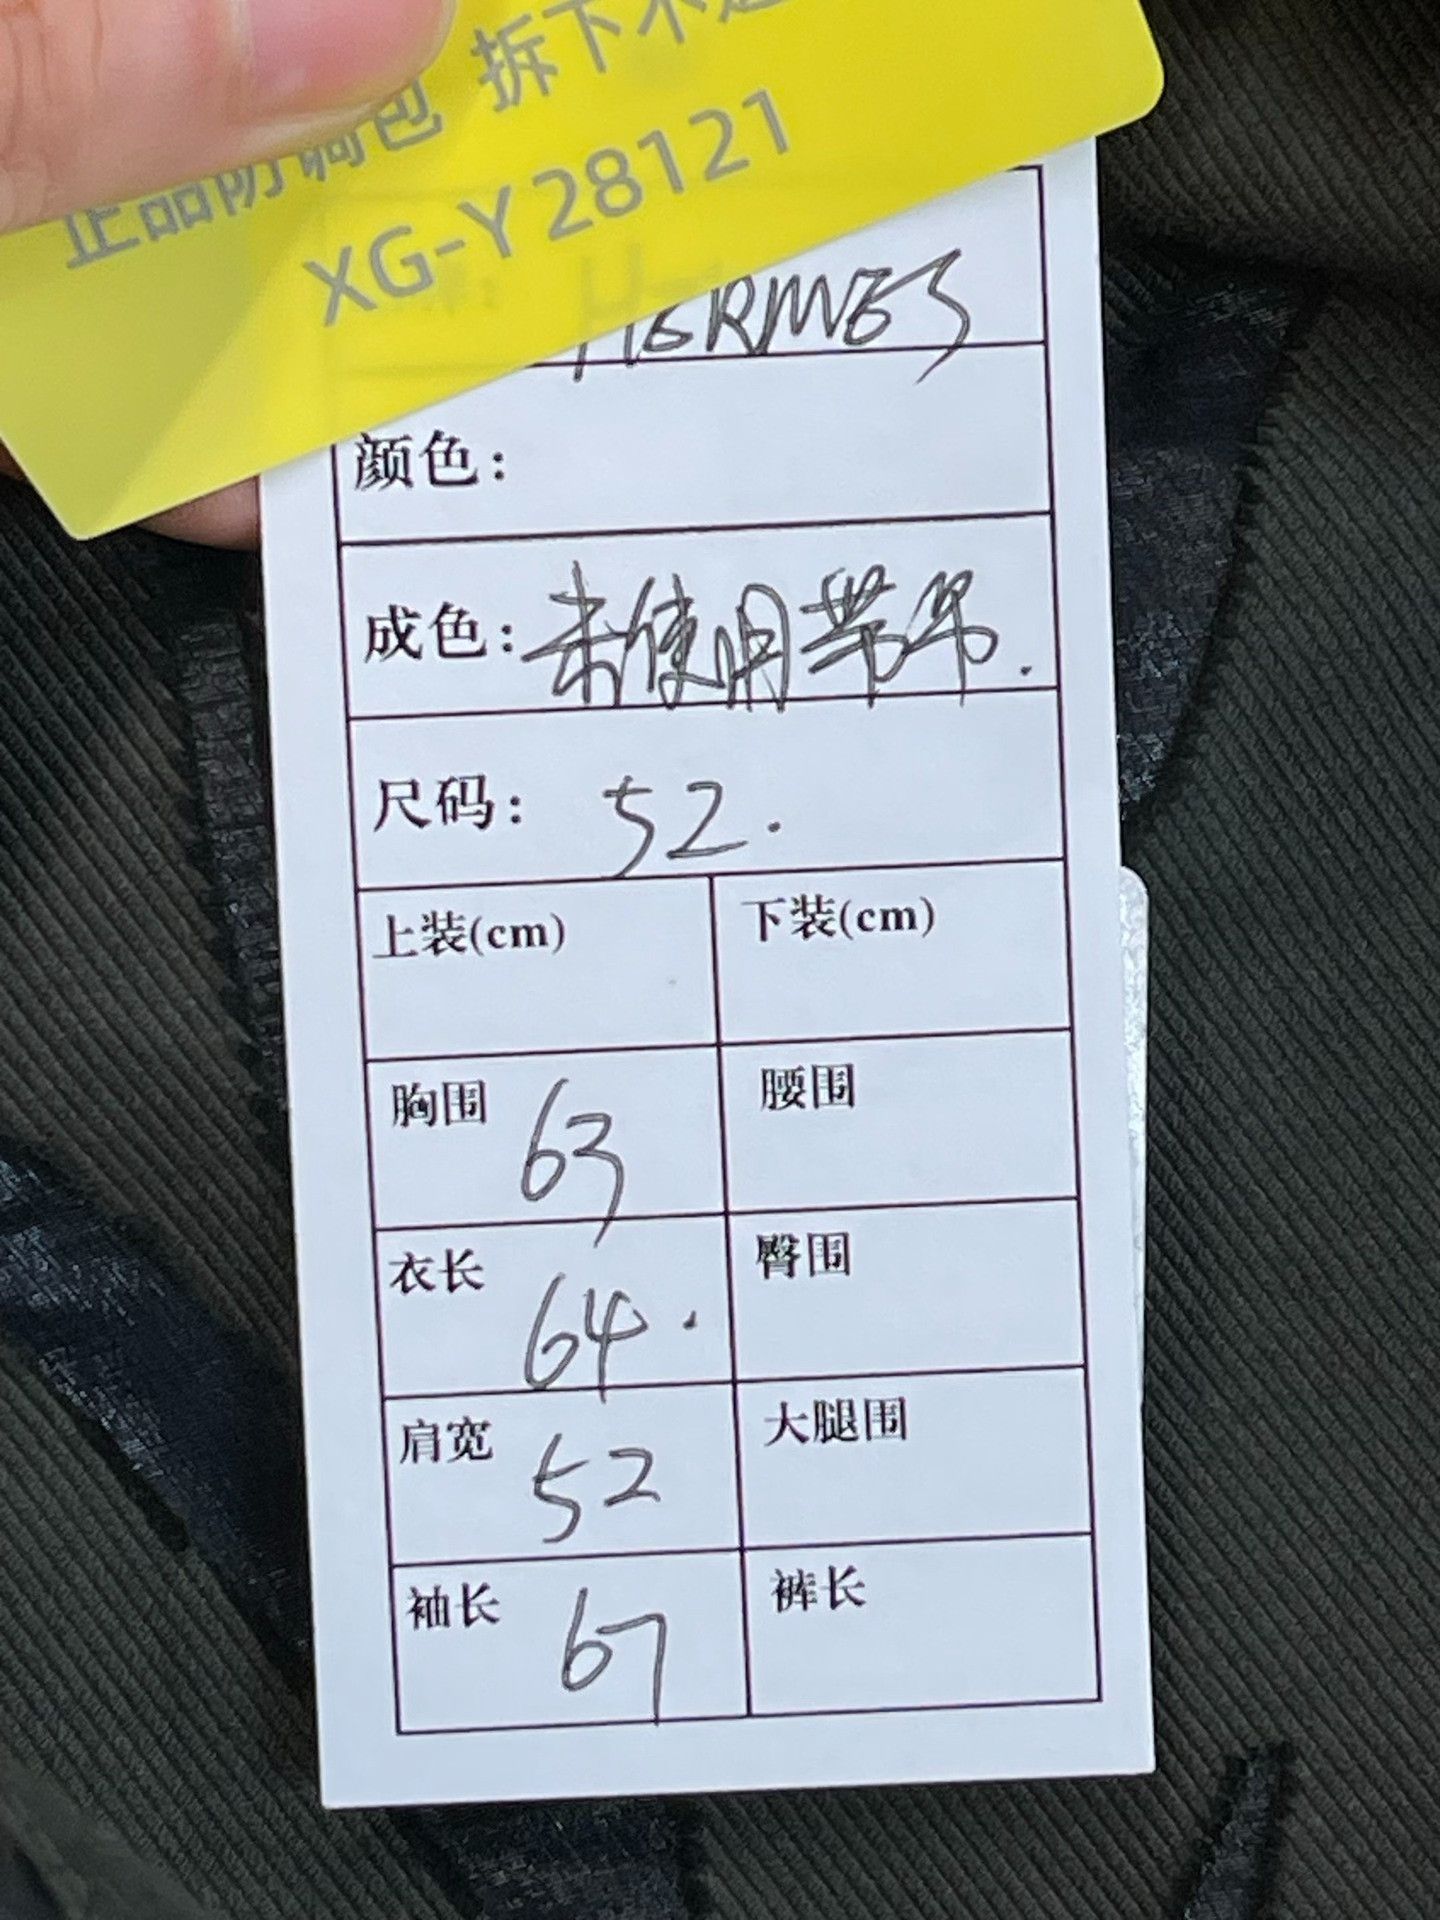 正品防调包 拆下不
XG-Y28121
HERMES
颜色：
成色：未使用带吊.
尺码： 52.
上装(cm) 下装(cm)
胸围 63 腰围
衣长 64. 臀围
肩宽 52 大腿围
袖长 67 裤长